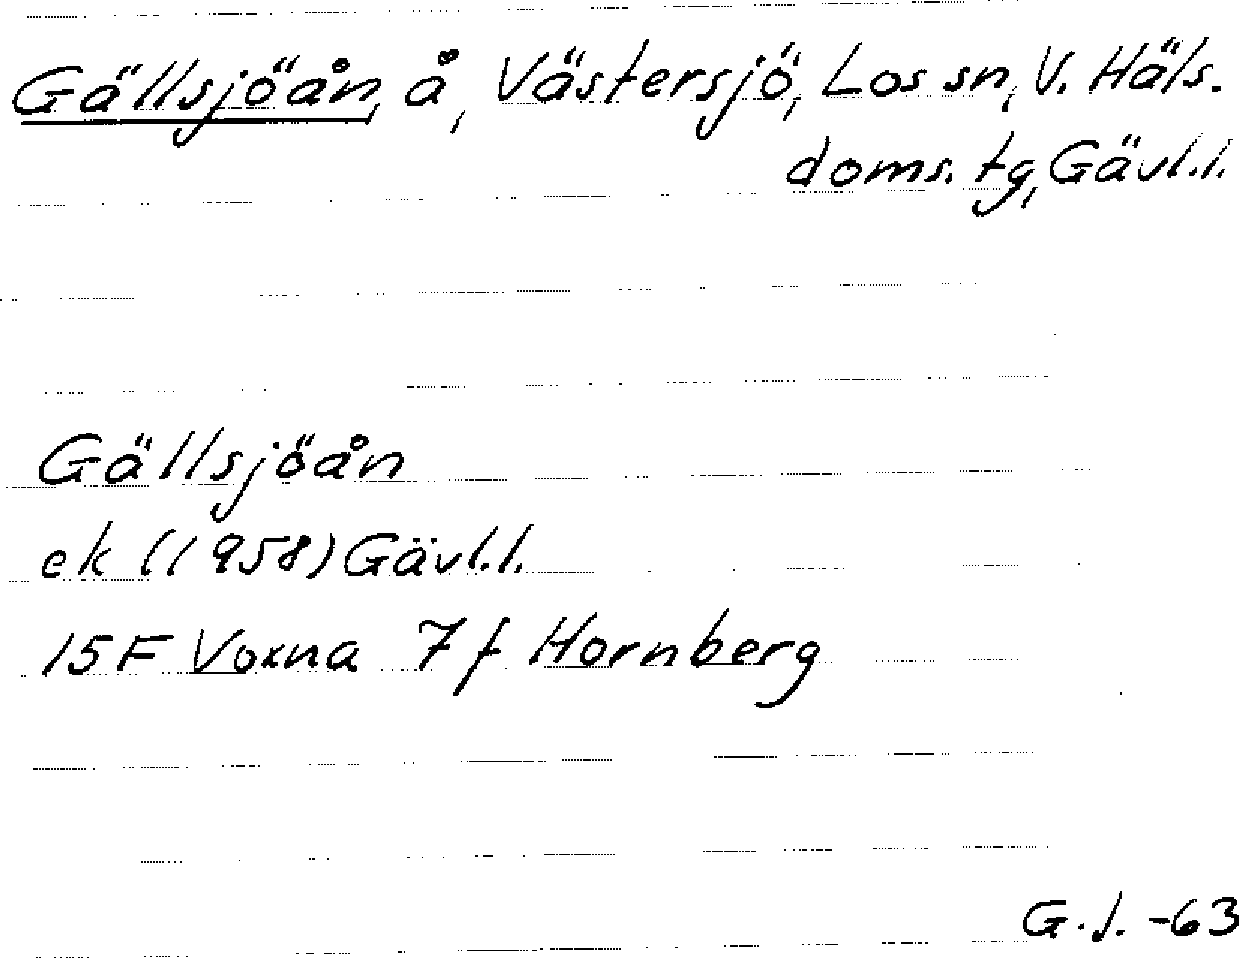 Gällsjöån, å, Västersjö, Los sn, V. Häls.
doms. tg, Gävl.l.
Gällsjöån
ek (1958) Gävl.l.
15F Voxna 7f Hornberg
G.J. -63